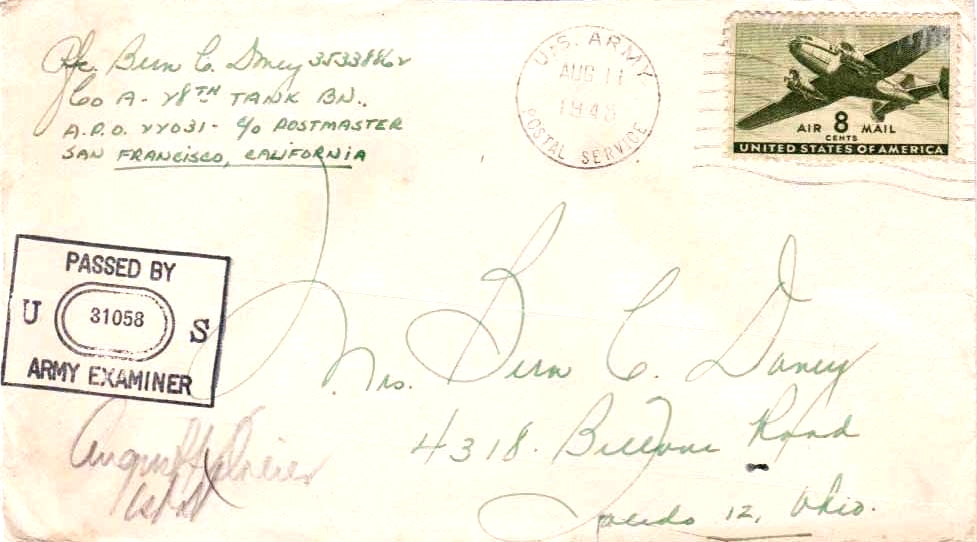 Pfc. Bern C. Dancy 35338862
Co A - 28TH TANK BN.
A.P.O. 22031 - C/O POSTMASTER
SAN FRANCISCO, CALIFORNIA
U.S. ARMY
AUG 11
1945
POSTAL SERVICE
AIR 8 MAIL
CENTS
UNITED STATES OF AMERICA
PASSED BY
U 31058 S
ARMY EXAMINER
Mrs. Bern C. Dancy
4318. Road
Toledo 12, Ohio.